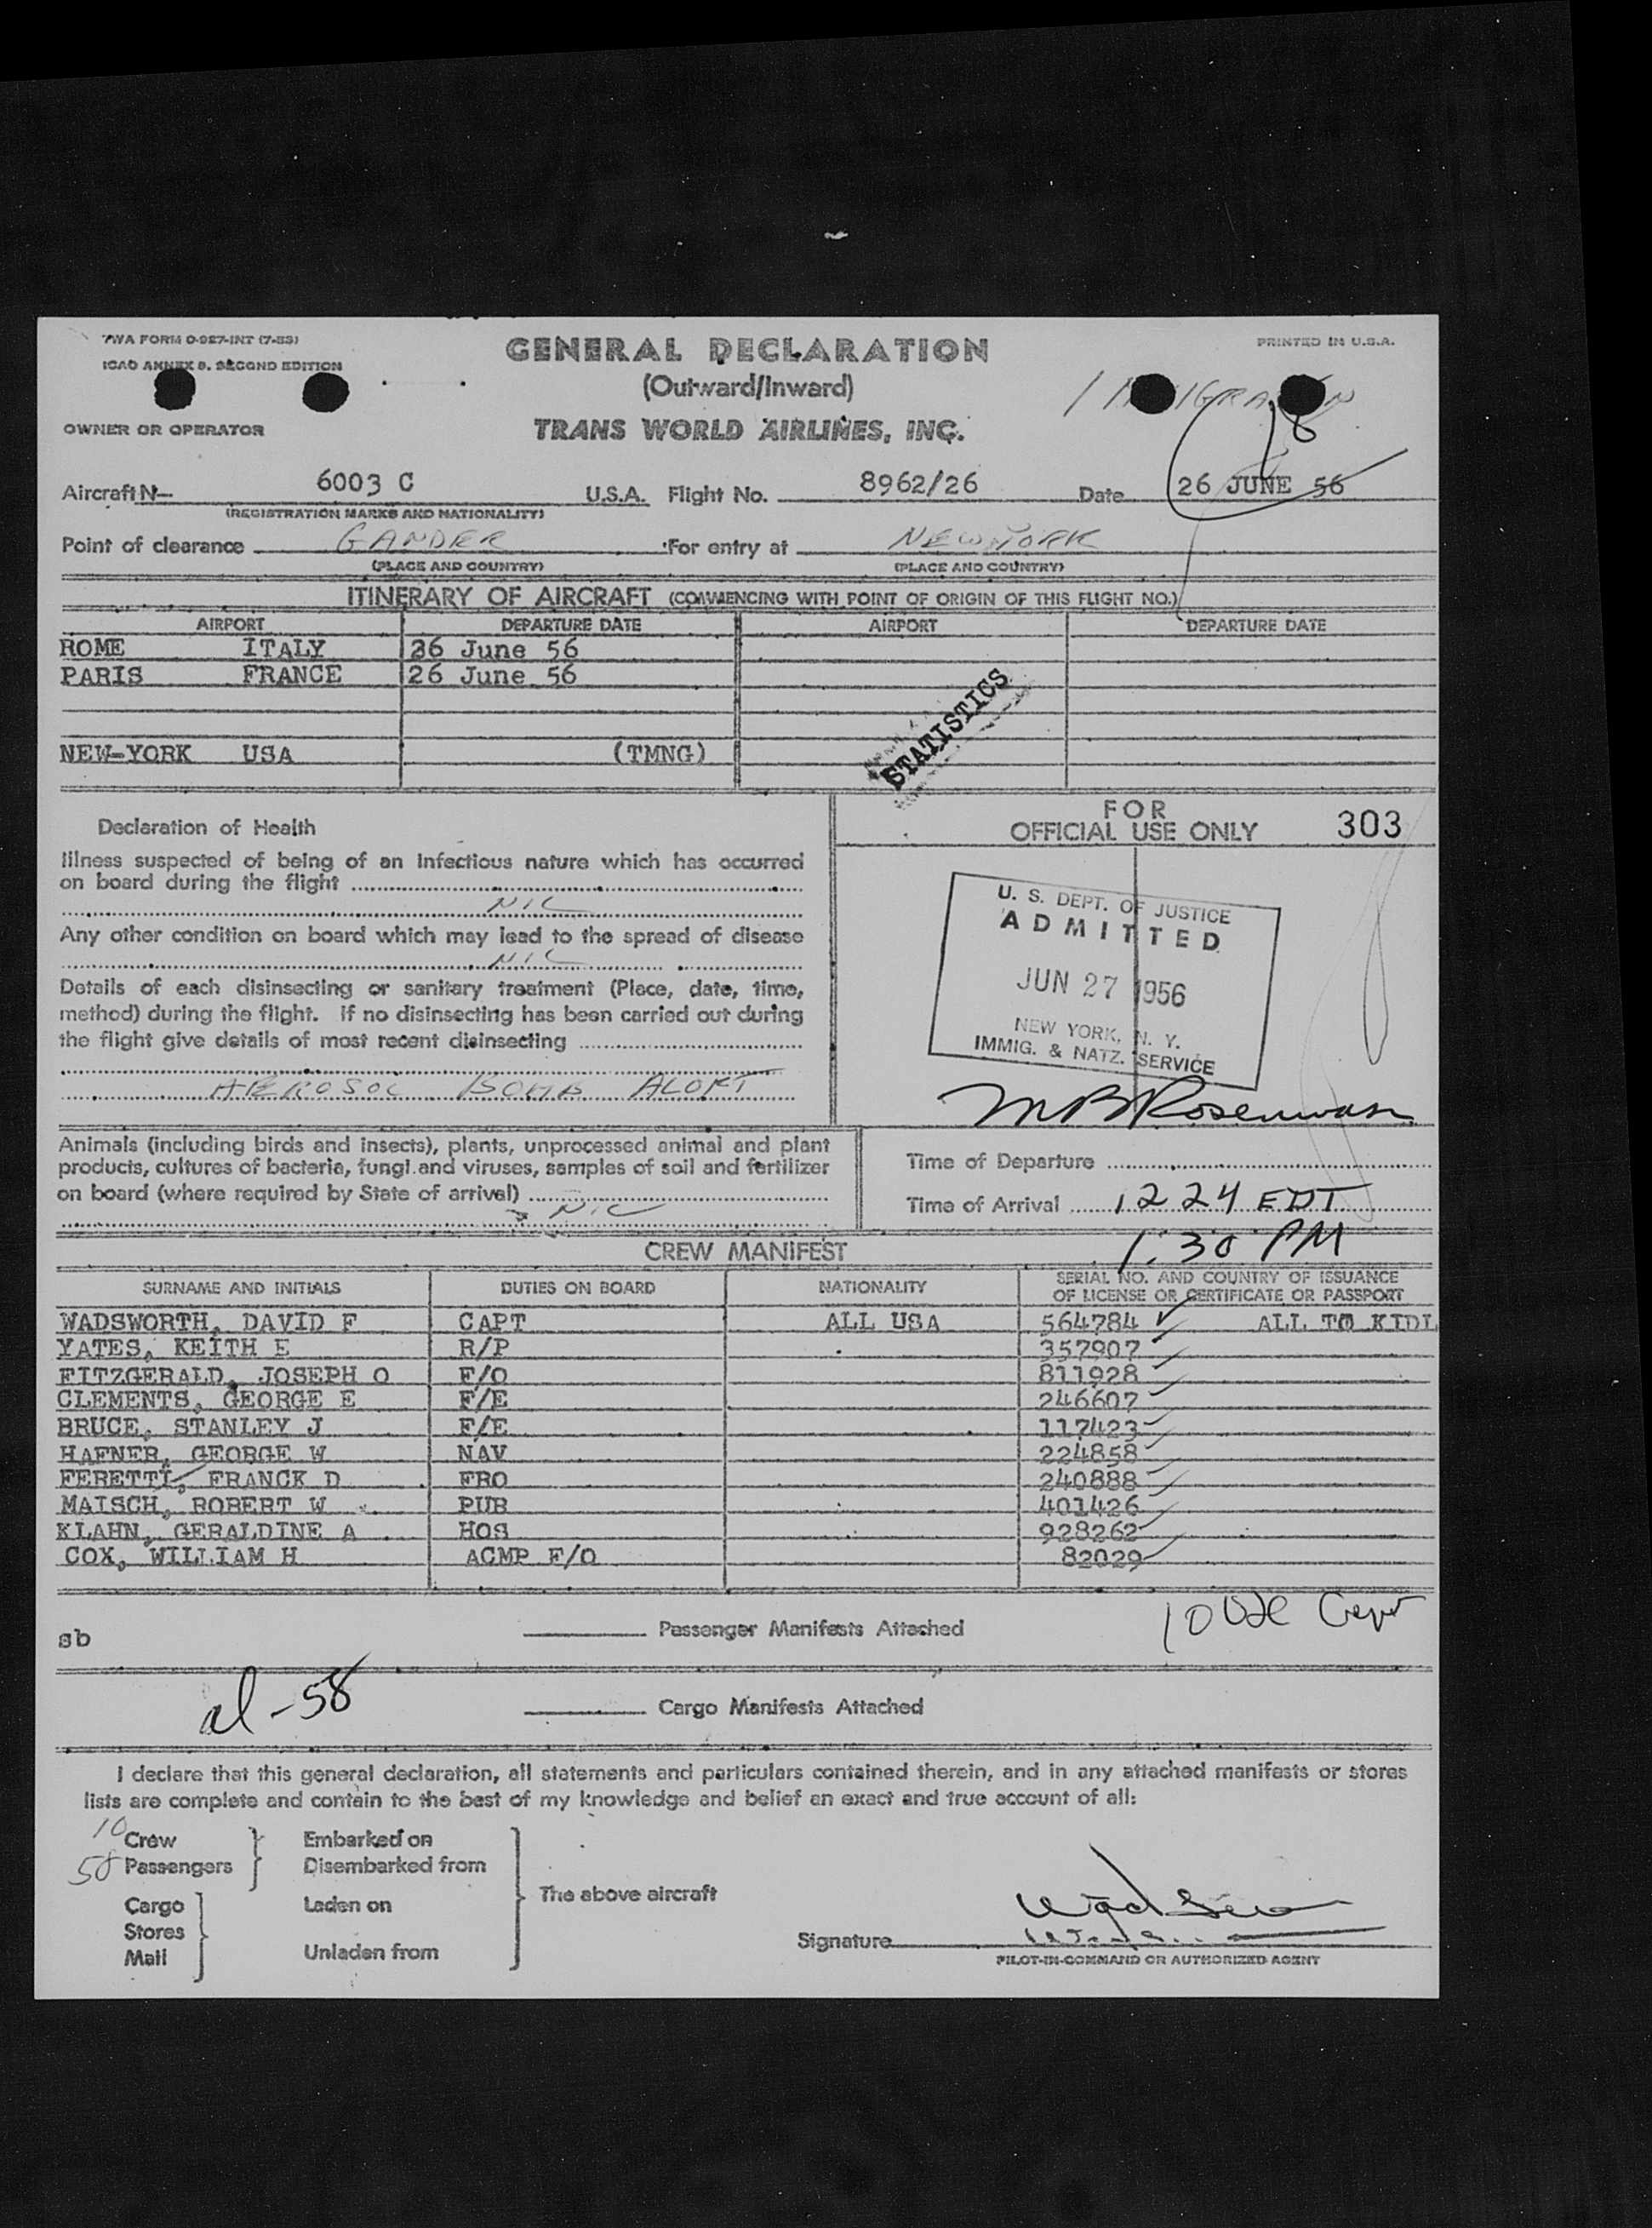 TWA FORM O-927-INT (7-53)
ICAO ANNEX 9. SECOND EDITION
GENERAL DECLARATION
PRINTED IN U.S.A.
(Outward/Inward)
OWNER OR OPERATOR
TRANS WORLD AIRLINES, INC.
18
Aircraft N- 6003 C U.S.A. Flight No. 8962/26 Date 26 JUNE 56
(REGISTRATION MARKS AND NATIONALITY)
Point of clearance GANDER For entry at NEW YORK
(PLACE AND COUNTRY) (PLACE AND COUNTRY)
ITINERARY OF AIRCRAFT (COMMENCING WITH POINT OF ORIGIN OF THIS FLIGHT NO.)
AIRPORT DEPARTURE DATE AIRPORT DEPARTURE DATE
ROME ITALY 26 June 56
PARIS FRANCE 26 June 56
STATISTICS
NEW-YORK USA (TMNG)
FOR
OFFICIAL USE ONLY 303
Declaration of Health
Illness suspected of being of an infectious nature which has occurred
on board during the flight
NIL
Any other condition on board which may lead to the spread of disease
NIL
Details of each disinsecting or sanitary treatment (Place, date, time,
method) during the flight. If no disinsecting has been carried out during
the flight give details of most recent disinsecting
AEROSOL BOMB ALOFT
U. S. DEPT. OF JUSTICE
ADMITTED
JUN 27 1956
NEW YORK, N. Y.
IMMIG. & NATZ. SERVICE
Animals (including birds and insects), plants, unprocessed animal and plant
products, cultures of bacteria, fungi and viruses, samples of soil and fertilizer
on board (where required by State of arrival)
NIL
Time of Departure
Time of Arrival 1224 EDT
1:30 PM
CREW MANIFEST
SURNAME AND INITIALS DUTIES ON BOARD NATIONALITY SERIAL NO. AND COUNTRY OF ISSUANCE
OF LICENSE OR CERTIFICATE OR PASSPORT
WADSWORTH, DAVID F CAPT ALL USA 564784 ALL TO KIDL
YATES, KEITH E R/P 357907
FITZGERALD, JOSEPH O F/O 811928
CLEMENTS, GEORGE E F/E 246607
BRUCE, STANLEY J F/E 117423
HAFNER, GEORGE W NAV 224858
FERETTI, FRANCK D FRO 240888
MAISCH, ROBERT W PUR 401426
KLAHN, GERALDINE A HOS 928262
COX, WILLIAM H ACMP F/O 82029
sb
Passenger Manifests Attached
al-58
Cargo Manifests Attached
I declare that this general declaration, all statements and particulars contained therein, and in any attached manifests or stores
lists are complete and contain to the best of my knowledge and belief an exact and true account of all:
10 Crew Embarked on
58 Passengers Disembarked from
Cargo Laden on
The above aircraft
Stores
Mail Unladen from
Signature
PILOT-IN-COMMAND OR AUTHORIZED AGENT